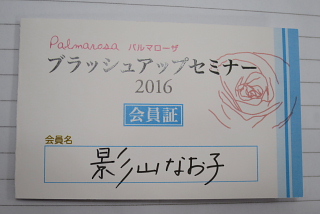 Palmarosa パルマローザ
ブラッシュアップセミナー
2016
会員証
会員名
影山なお子